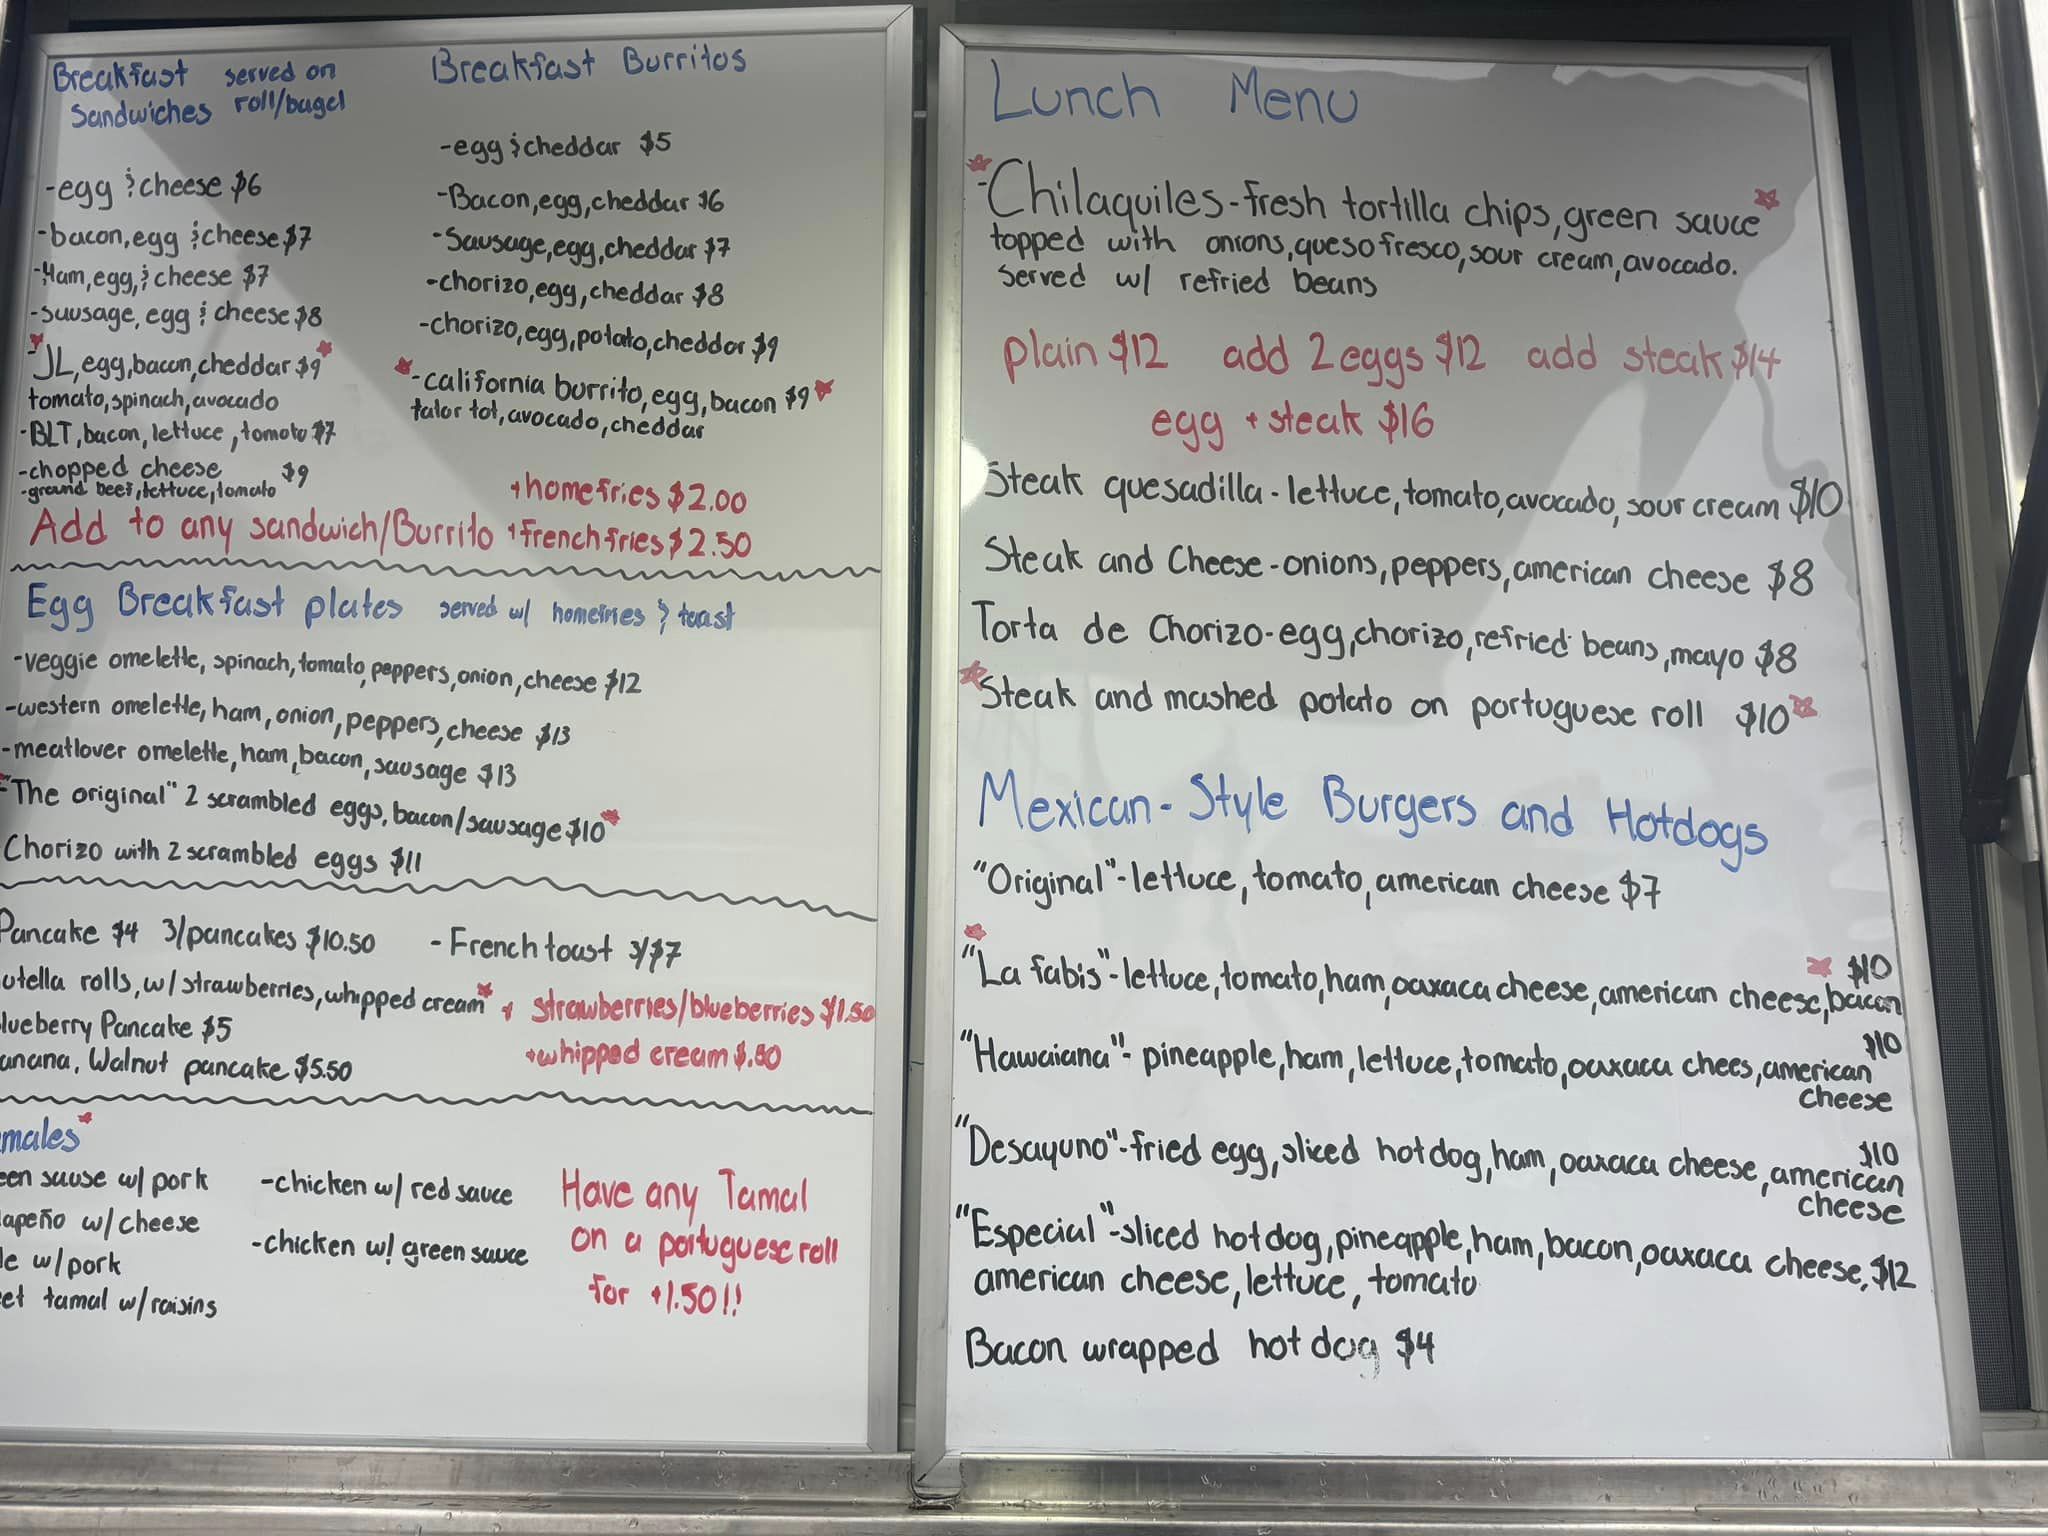 Breakfast served on
Sandwiches roll/bagel
-egg & cheese $6
-bacon, egg & cheese $7
-Ham, egg, & cheese $7
-sausage, egg & cheese $8
-JL, egg, bacon, cheddar $9
tomato, spinach, avocado
-BLT, bacon, lettuce, tomato $7
-chopped cheese $9
-ground beef, lettuce, tomato
Breakfast Burritos
-egg & cheddar $5
-Bacon, egg, cheddar $6
-Sausage, egg, cheddar $7
-chorizo, egg, cheddar $8
-chorizo, egg, potato, cheddar $9
-california burrito, egg, bacon $9
tator tot, avocado, cheddar
+homefries $2.00
Add to any sandwich/Burrito +frenchfries $2.50
Egg Breakfast plates served w/ homefries & toast
-veggie omelette, spinach, tomato, peppers, onion, cheese $12
-western omelette, ham, onion, peppers, cheese $13
-meatlover omelette, ham, bacon, sausage $13
-"The original" 2 scrambled eggs, bacon/sausage $10
Chorizo with 2 scrambled eggs $11
Pancake $4 3/pancakes $10.50 -French toast 3/$7
utella rolls, w/ strawberries, whipped cream + strawberries/blueberries $1.50
lueberry Pancake $5 +whipped cream $.50
anana, Walnut pancake $5.50
males
een sause w/ pork
lapeño w/ cheese
le w/ pork
eet tamal w/ raisins
-chicken w/ red sauce
-chicken w/ green sauce
Have any Tamal
on a portuguese roll
for +1.50!!
Lunch Menu
-Chilaquiles-fresh tortilla chips, green sauce
topped with onions, queso fresco, sour cream, avocado.
served w/ refried beans
plain $12 add 2 eggs $12 add steak $14
egg + steak $16
Steak quesadilla-lettuce, tomato, avocado, sour cream $10
Steak and Cheese-onions, peppers, american cheese $8
Torta de Chorizo-egg, chorizo, refried beans, mayo $8
Steak and mashed potato on portuguese roll $10
Mexican-Style Burgers and Hotdogs
"Original"-lettuce, tomato, american cheese $7
"La fabis"-lettuce, tomato, ham, oaxaca cheese, american cheese, bacon $10
"Hawaiana"-pineapple, ham, lettuce, tomato, oaxaca chees, american $10
cheese
"Desayuno"-fried egg, sliced hot dog, ham, oaxaca cheese, american $10
cheese
"Especial"-sliced hot dog, pineapple, ham, bacon, oaxaca cheese, $12
american cheese, lettuce, tomato
Bacon wrapped hot dog $4